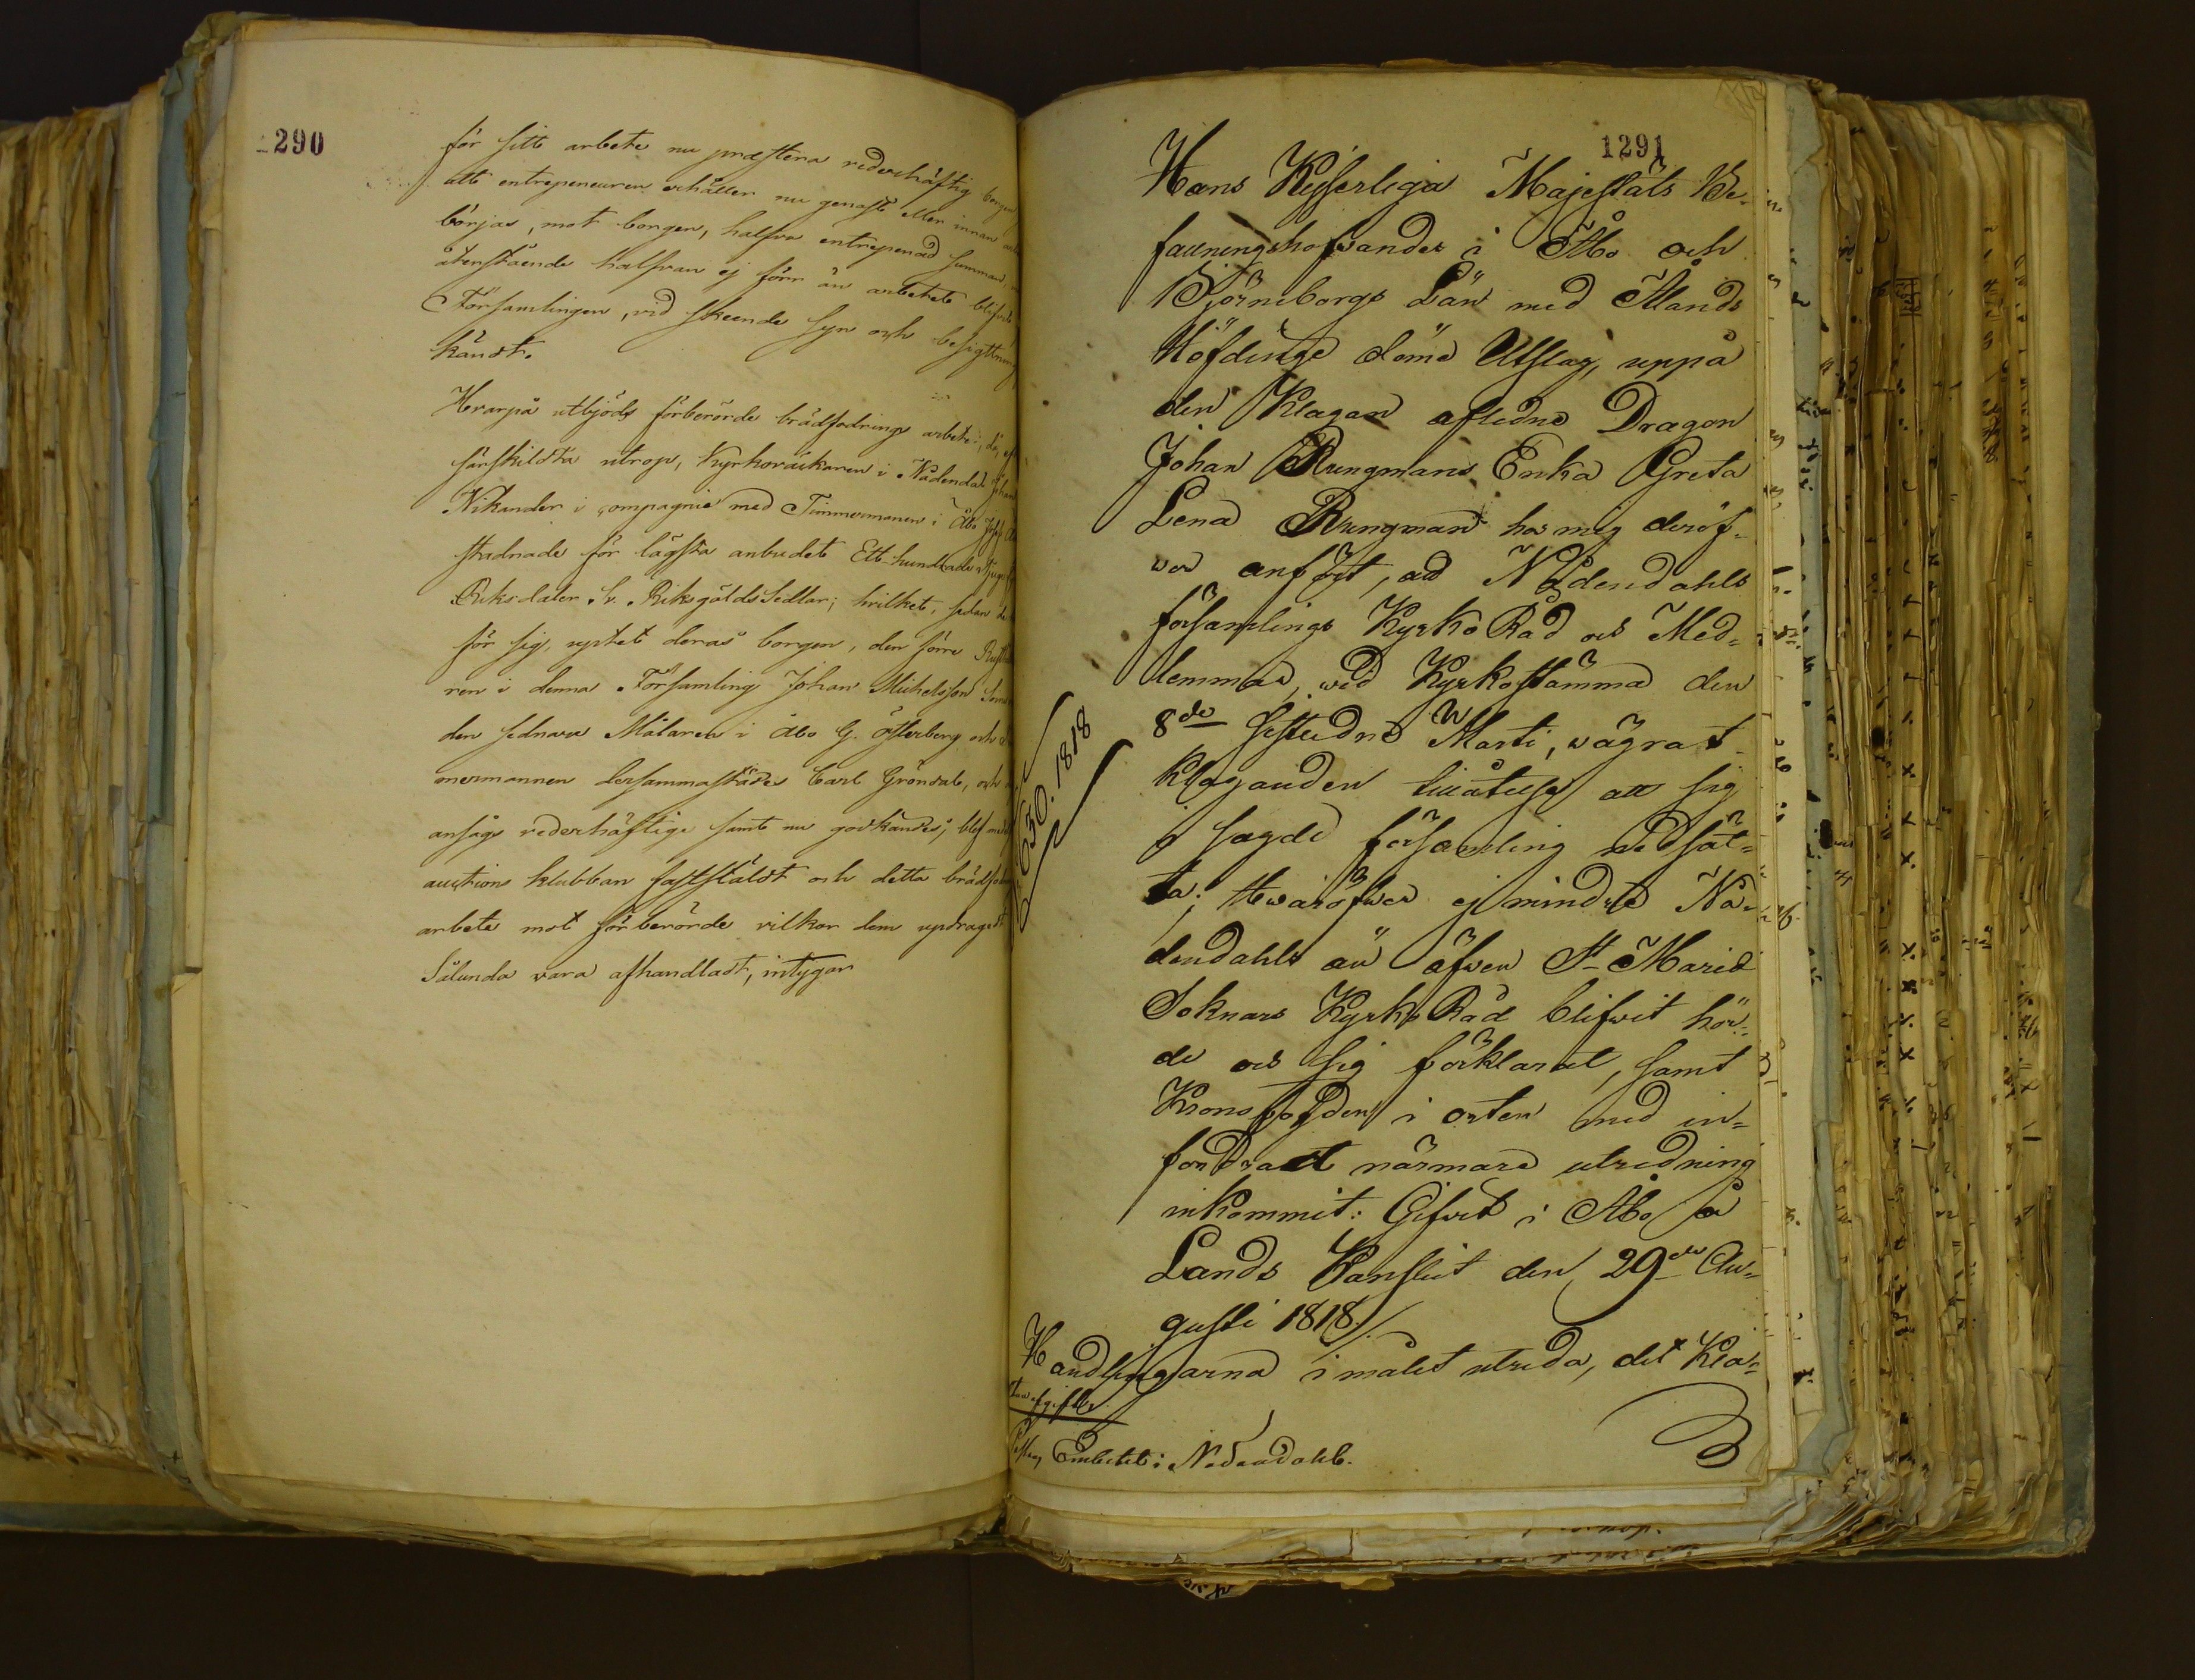 1290
för sitt arbete nu præstera vederhäftig borgen
att entrepeneuren erhåller nu genast eller innan
börjas, mot borgen, halfva entreprenad summan,
återstående halfvan ej förr än arbetet blifvit
Församlingen, vid skeende syn och besigttning
kändt.
Herarpå utbjöds förberörde brädfodrings arbete,
särskildta utrop, Kyrkoväktaren i Nådendal Johan
Nikander i compagnie med Timmermannen i Åbo Josef
stadnade för lägsta anbudet Ett hundrade tjugu
Riksdaler Sv. RiksgäldsSedlar; hvilket, sedan de
för sig, uptet deras borgen, den förre
ren i denna Församling Johan Michelsson
den sednare Målaren i Åbo G. Österberg och
mermannen dersammastädes Carl Gröndal, och
ansågs vederhäftige samt nu godkändes; blef med
auctions klubban faststäldt och detta brädfodrings
arbete mot förberörde vilkor dem updragedt
Sålunda vara afhandladt, intygar
1291
Hans Kejserliga Majestäts Be-
fallningshafvandes i Åbo och
Björneborgs Län med Ålands
Höfdinge döme Utslag, uppå
den Klagan aflidne Dragon
Johan Rungmans Enka Greta
Lena Rungman hos mig deröf-
wer anfört, att Nådendahls
församlings Kyrko Råd och Med-
lemmar, wid Kyrkostämma den
8de sistledne Marti, wägrat
Klaganden tillåtelse att sig
i sagde församling nedsät-
ta; Hwaröfwer ej mindre Nå-
dendahls än äfwen St Mariæ
Soknars Kyrko Råd blifwit hör-
de och sig förklarat, samt
Kronofogden i orten med in-
fordradt närmare utredning
inkommit: Gifwet i Åbo på
Lands Kansliet den 29de Au-
gusti 1818.
Handlingarna i målet utreda, det Kla-
N 630. 1818
utan afgift
Pastors Embetet i Nådendahl.